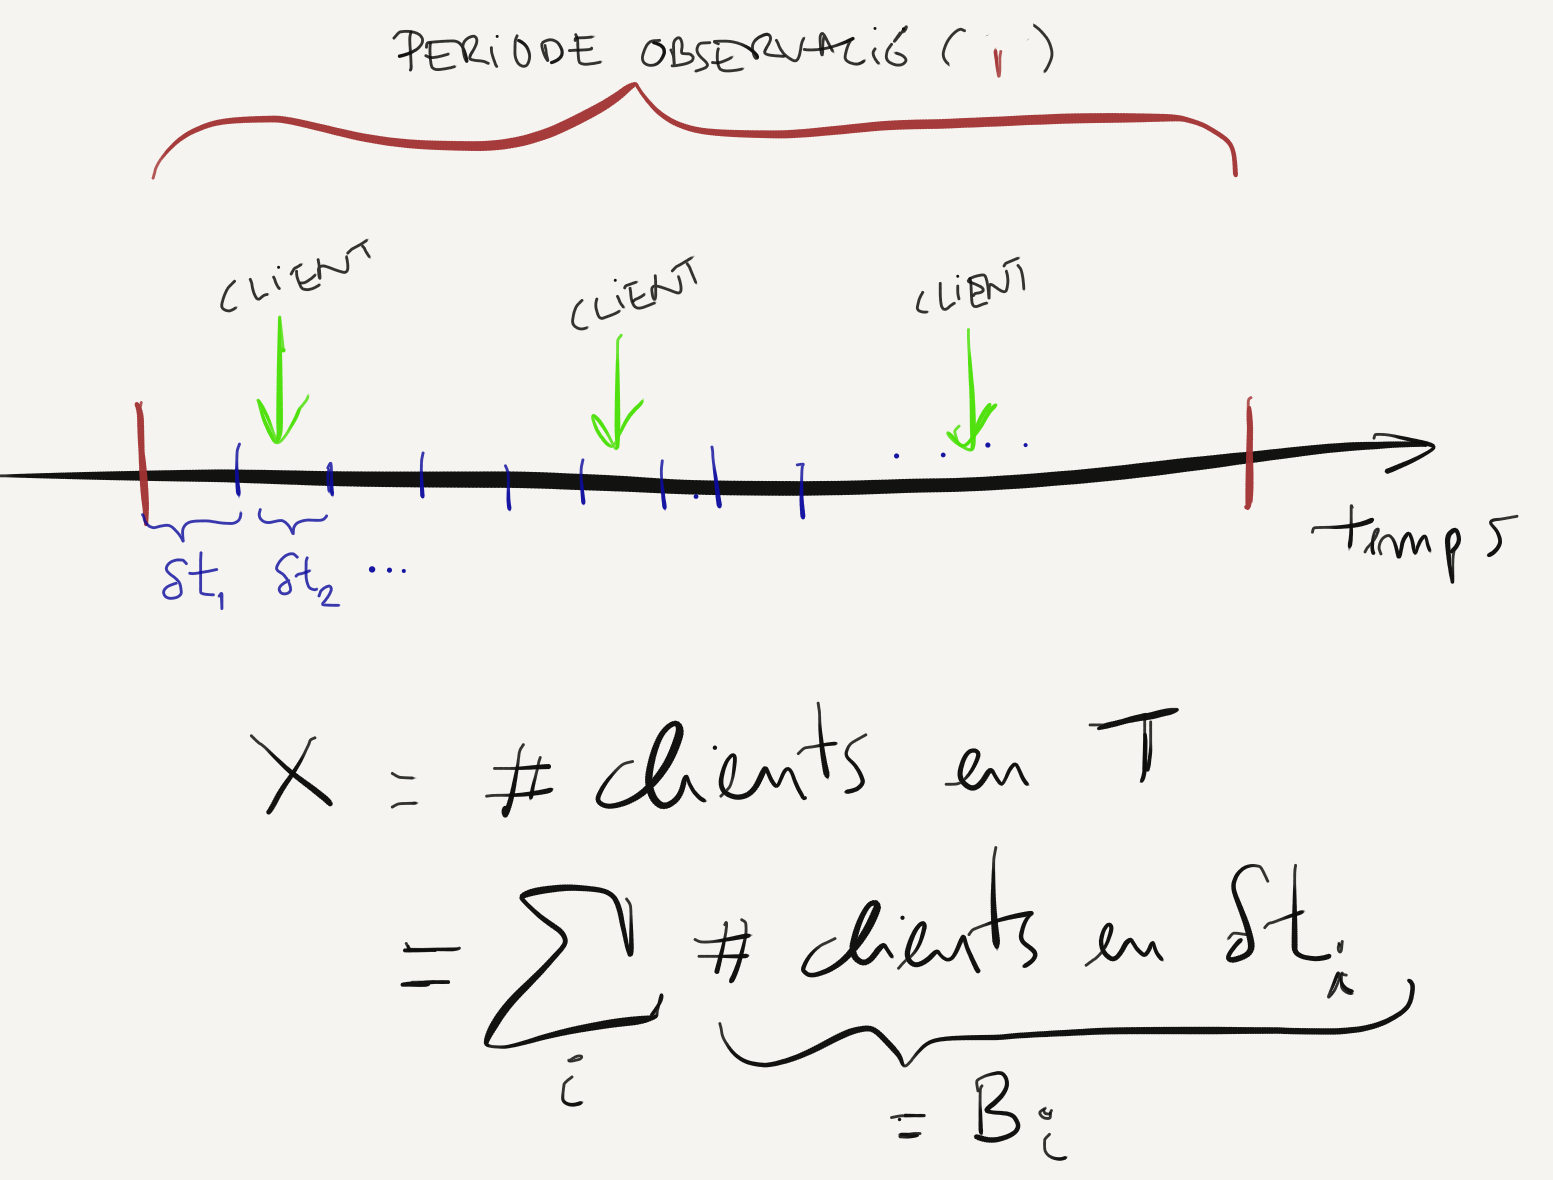 PERIODE OBSERVACIÓ ( )
CLIENT CLIENT CLIENT
δt₁ δt₂ ...
temps
X = # clients en T
= ∑ᵢ # clients en δtᵢ
= Bᵢ